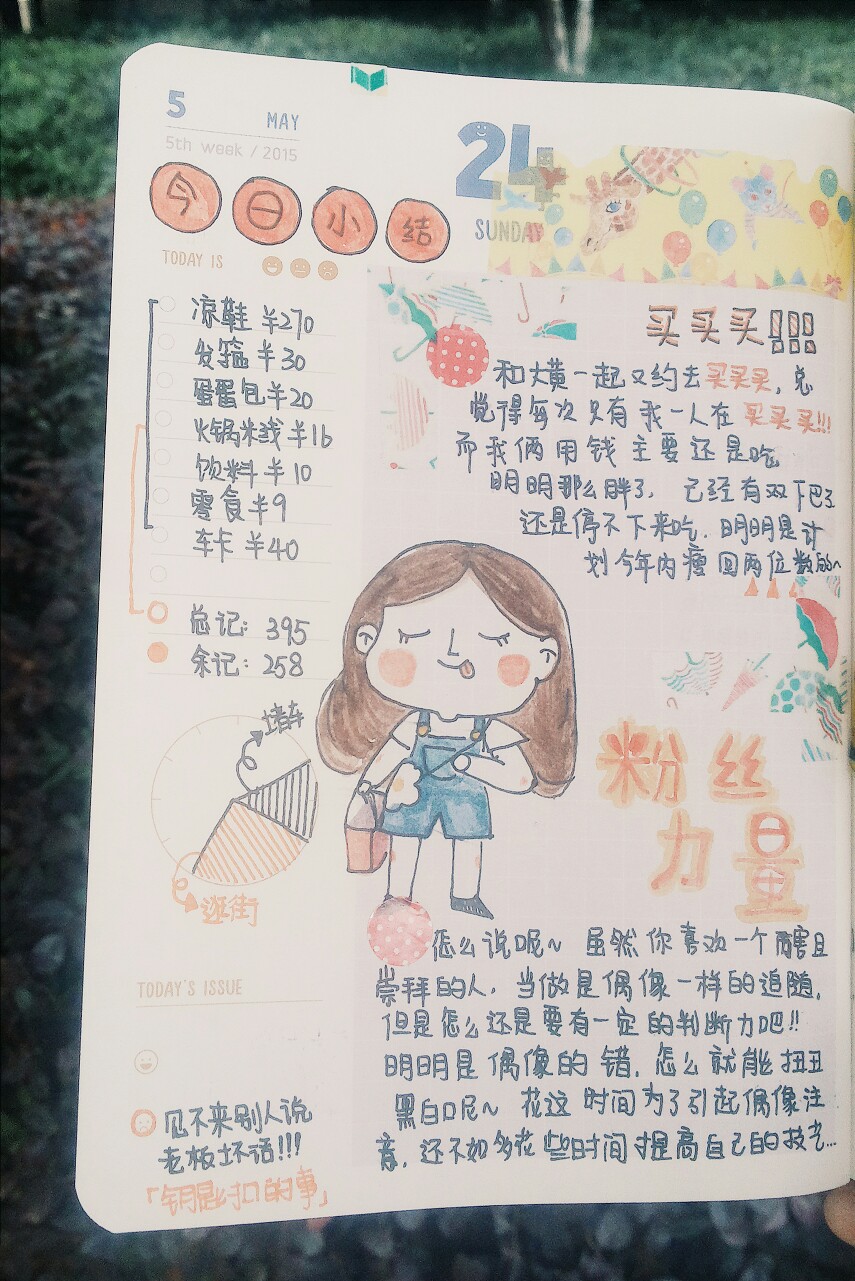 5 MAY
5th week / 2015
24
SUNDAY
今日小结
TODAY IS
凉鞋 ¥270
发箍 ¥30
蛋蛋包 ¥20
火锅米线 ¥16
饮料 ¥10
零食 ¥9
车卡 ¥40
总记: 395
余记: 258
堵车
逛街
TODAY'S ISSUE
见不来别人说
老板坏话!!!
「钥匙扣的事」
买买买!!!
和大黄一起又约去买买买,总
觉得每次只有我一人在买买买!!!
而我俩用钱主要还是吃
明明那么胖了,已经有双下巴了
还是停不下来吃.明明是计
划今年内瘦回两位数的~
粉丝
力量
怎么说呢~ 虽然你喜欢一个厉害且
崇拜的人,当做是偶像一样的追随,
但是怎么还是要有一定的判断力吧!!
明明是偶像的错,怎么就能扭丑
黑白呢~ 花这时间为了引起偶像注
意,还不如多花些时间提高自己的技艺...